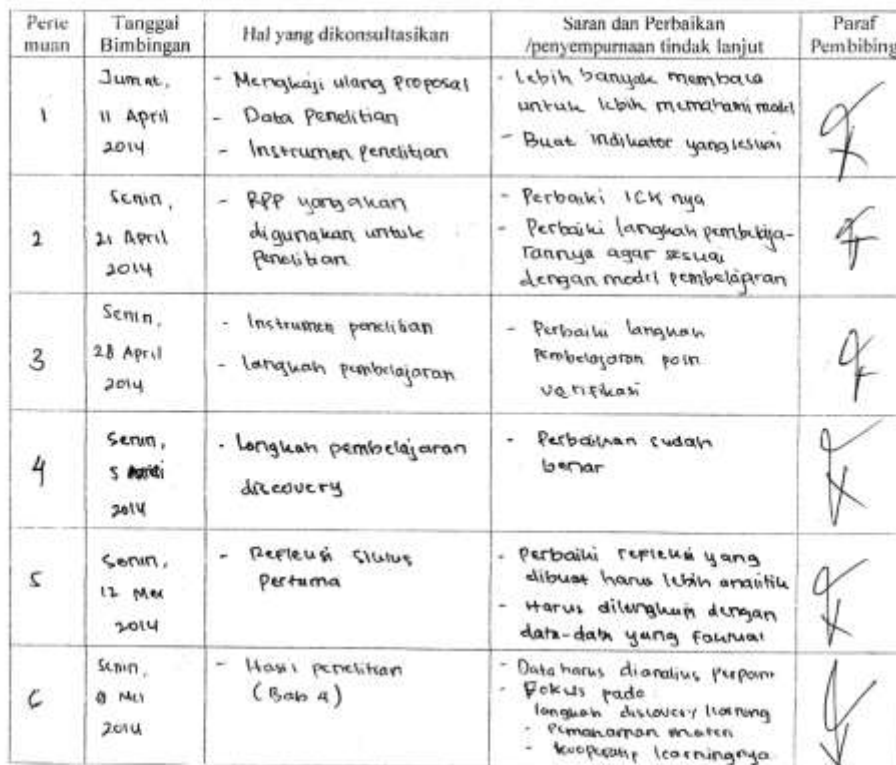 Perte muan
Tanggal Bimbingan
Hal yang dikonsultasikan
Saran dan Perbaikan /penyempurnaan tindak lanjut
Paraf Pembibing
1
Jumat,
11 April
2014
- Mengkaji ulang proposal
- Data Penelitian
- Instrumen penelitian
- Lebih banyak membaca
untuk lebih memahami model
- Buat indikator yang sesuai
2
Senin,
21 April
2014
- RPP yang akan
digunakan untuk
Penelitian
- Perbaiki ICK nya
- Perbaiki langkah pembelaja-
rannya agar sesuai
dengan model pembelajaran
3
Senin,
28 April
2014
- Instrumen penelitian
- langkah pembelajaran
- Perbaiki langkah
pembelajaran poin
verifikasi
4
Senin,
5
2014
- Langkah pembelajaran
discovery
- Perbaikan sudah
benar
5
Senin,
12 Mei
2014
- Refleksi siklus
pertama
- Perbaiki refleksi yang
dibuat harus lebih analitik
- Harus dilengkapi dengan
data-data yang faktual
6
Senin,
Mei
2014
- Hasil penelitian
(Bab 4)
- Data harus dianalisis perpoin
- Fokus pada
langkah discovery learning
- Pemahaman materi
- kooperatif learningnya